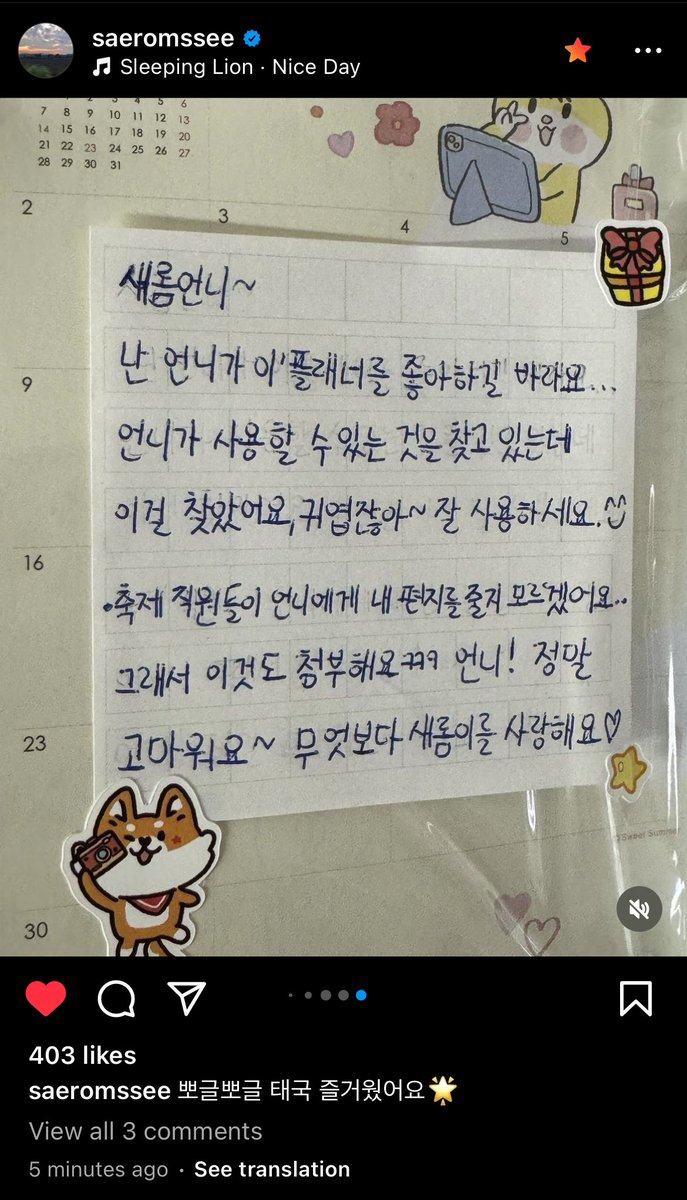 saeromssee
Sleeping Lion · Nice Day
2 3 4 5 6
7 8 9 10 11 12 13
14 15 16 17 18 19 20
21 22 23 24 25 26 27
28 29 30 31
2
3
4
5
새롬언니~
9
난 언니가 이 플래너를 좋아하길 바라요...
언니가 사용할 수 있는 것을 찾고 있는데
이걸 찾았어요, 귀엽잖아~ 잘 사용하세요.
16
축제 직원들이 언니에게 내 편지를 줄지 모르겠어요..
그래서 이것도 첨부해요ㅋㅋㅋ 언니! 정말
23
고마워요~ 무엇보다 새롬이를 사랑해요♡
©Sweet Summer
30
403 likes
saeromssee 뽀글뽀글 태국 즐거웠어요🌟
View all 3 comments
5 minutes ago · See translation